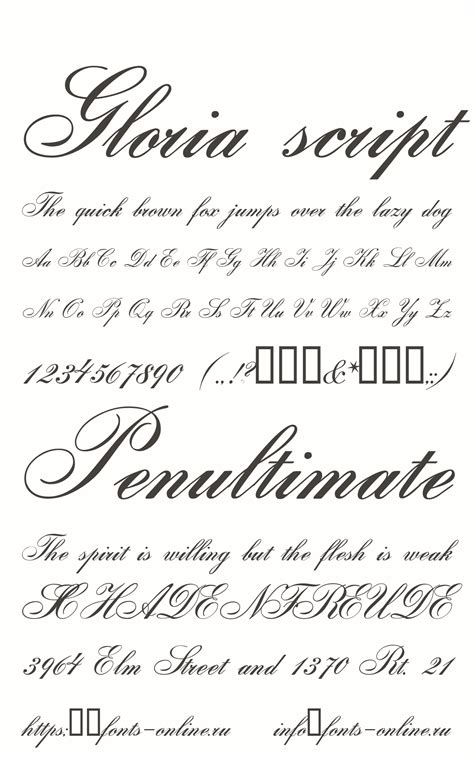 Gloria script
The quick brown fox jumps over the lazy dog
Aa Bb Cc Dd Ee Ff Gg Hh Ii Jj Kk Ll Mm
Nn Oo Pp Qq Rr Ss Tt Uu Vv Ww Xx Yy Zz
1234567890 (.,!?▯▯▯&*▯▯▯,;:)
Penultimate
The spirit is willing but the flesh is weak
SCHADENFREUDE
3964 Elm Street and 1370 Rt. 21
https:▯▯fonts-online.ru info▯fonts-online.ru